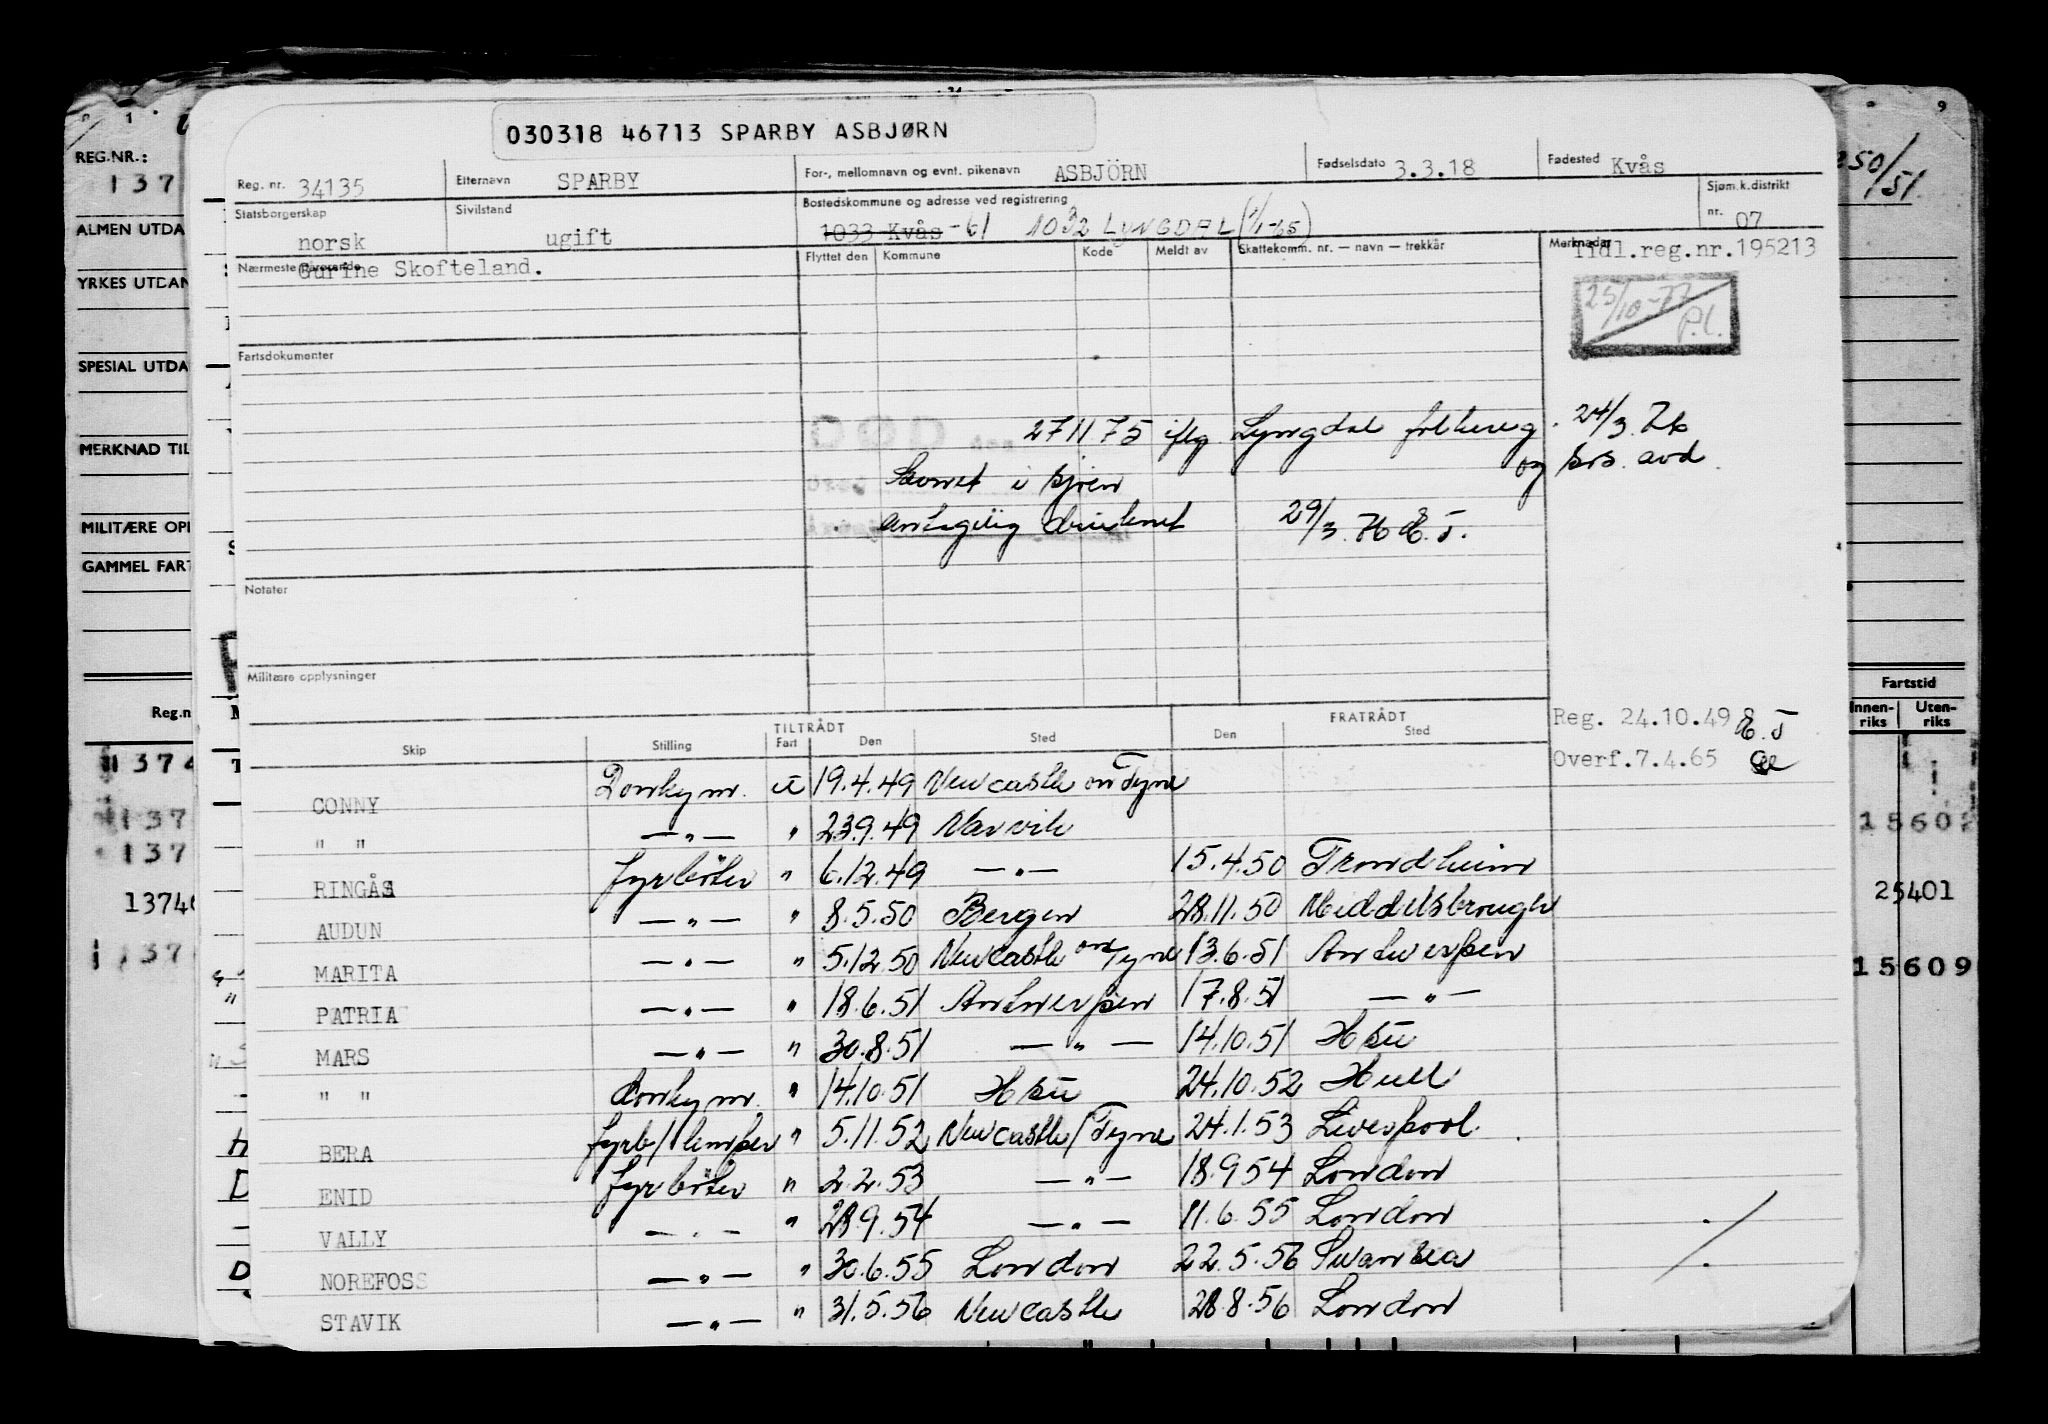 030318 46713 SPARBY ASBJØRN
Reg. nr. 34135 Etternavn SPARBY For-, mellomnavn og evnt. pikenavn ASBJÖRN Fødselsdato 3.3.18 Fødested Kvås
Statsborgerskap norsk Sivilstand ugift Bostedskommune og adresse ved registrering 1033 Kvås -61 1032 LYNGDAL (1/1-65) Sjøm.k.distrikt nr. 07
Nærmeste pårørende Gurine Skofteland. Flyttet den Kommune Kode Meldt av Skattekomm. nr. — navn — trekkår Merknader Tidl.reg.nr.195213
25/10-77 P.L.
Fartsdokumenter
27 11 75 iflg Lyngdal folkereg. 24/3. 76
Savnet i sjøen og sos. avd.
antagelig druknet 29/3. 76 E.T.
Notater
Militære opplysninger
Reg. 24.10.49 E.T
Overf.7.4.65
TILTRÅDT FRATRÅDT
Skip Stilling Fart Den Sted Den Sted
CONNY Donkeym. u 19.4.49 Newcastle on Tyne
" " — " — " 23.9.49 Narvik
RINGÅS fyrböter " 6.12.49 — " — 15.4.50 Trondheim
AUDUN — " — " 8.5.50 Bergen 28.11.50 Middelsbrough
MARITA — " — " 5.12.50 Newcastle on Tyne 13.6.51 Antwerpen
PATRIA — " — " 18.6.51 Antwerpen 17.8.51 — " —
MARS — " — " 30.8.51 — " — 14.10.51 Hsu
" " donkeym. " 14.10.51 Hsu 24.10.52 Hull
BERA fyrb/lemper " 5.11.52 Newcastle/Tyne 24.1.53 Liverpool.
ENID fyrböter " 2.2.53 — " — 18.9.54 London
VALLY — " — " 28.9.54 — " — 11.6.55 London
NOREFOSS — " — " 30.6.55 London 22.5.56 Swansea
STAVIK — " — " 31.5.56 Newcastle 28.8.56 London
REG.NR.:
137
ALMEN UTDA
YRKES UTDAN
SPESIAL UTDA
MERKNAD TIL
MILITÆRE OPP
GAMMEL FART
Reg.n
1374
137
137
13740
137
9
250/51
Fartstid
Innen-riks Uten-riks
15602
25401
15609